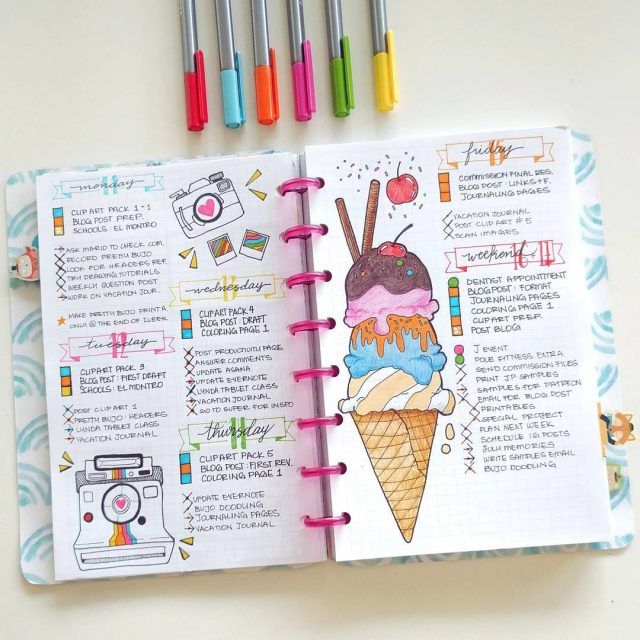 monday 11
CLIP ART PACK 1-1
BLOG POST PREP.
SCHOOLS: EL MONTRO
ASK MARIO TO CHECK COM.
RECORD PRETTY BUJO
LOOK FOR HEADERS REF.
TRY DRAWING TUTORIALS
WEEKLY QUESTION POST
WORK ON VACATION JOUR.
MAKE PRETTY BUJO PRINTA.
ONLY @ THE END OF WEEK
tuesday 12
CLIPART PACK 3
BLOG POST: FIRST DRAFT
SCHOOLS: EL MONTRO
POST CLIP ART 1
PRETTY BUJO: HEADERS
LYNDA TABLET CLASS
VACATION JOURNAL
wednesday 13
CLIPART PACK 4
BLOG POST: DRAFT
COLORING PAGE 1
POST PRODUCTIVITY PAGE
ANSWER COMMENTS
UPDATE ASANA
UPDATE EVERNOTE
LYNDA TABLET CLASS
VACATION JOURNAL
GO TO SUPER FOR INSPO
thursday
CLIP ART PACK 5
BLOG POST: FIRST REV.
COLORING PAGE 1
UPDATE EVERNOTE
BUJO DOODLING
JOURNALING PAGES
VACATION JOURNAL
friday
COMMISSION FINAL RES.
BLOG POST: LINKS + F.
JOURNALING PAGES
VACATION JOURNAL
POST CLIP ART #5
SCAN IMAGES
weekend
DENTIST APPOINTMENT
BLOGPOST: FORMAT
JOURNALING PAGES
COLORING PAGE 1
CLIP ART PREP.
POST BLOG
J EVENT
POLE FITNESS EXTRA
SEND COMMISSION FILES
PRINT JP SAMPLES
SAMPLES FOR PATREON
EMAIL FOR BLOG POST
PRINTABLES
SPECIAL PROJECT
PLAN NEXT WEEK
SCHEDULE IG POSTS
JULY MEMORIES
WRITE SAMPLES EMAIL
BUJO DOODLING